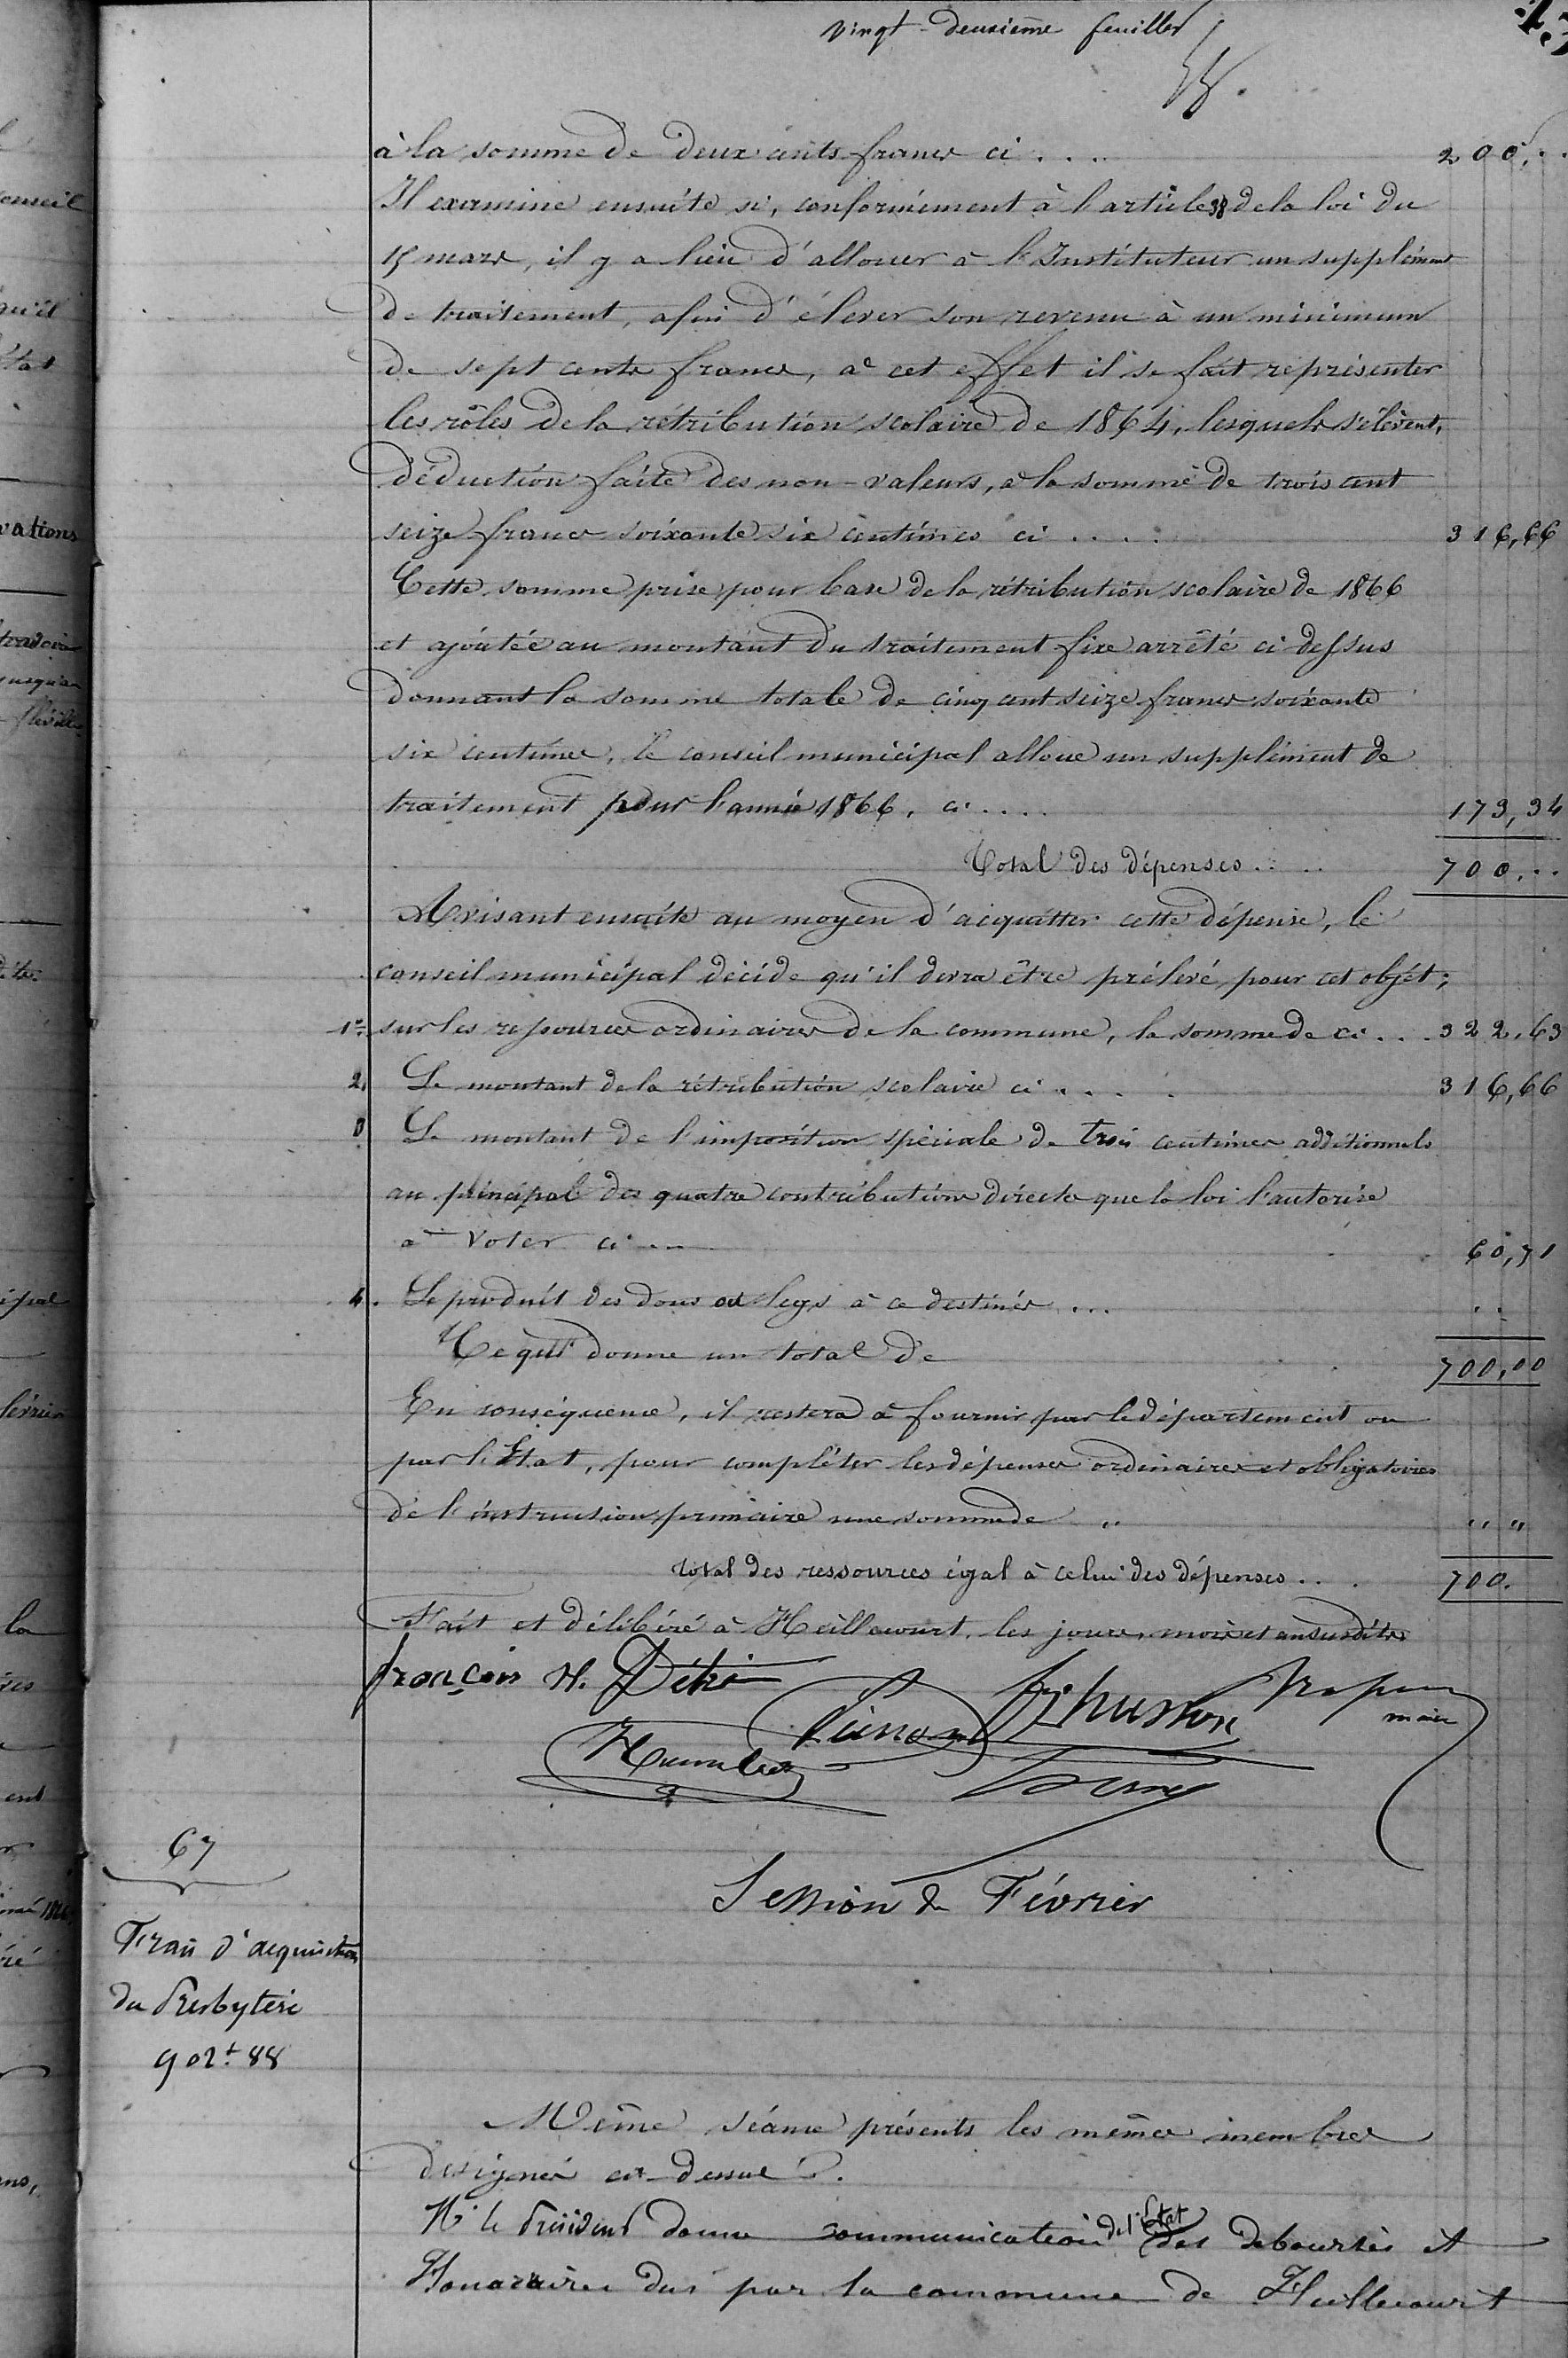 vingt-deuxième feuillet
à la somme de deux cents francs ci .... 200,..
Il examine ensuite si, conformément à l'article 38 de la loi du
15 mars, il y a lieu d'allouer à l'Instituteur un supplément
de traitement, afin d'élever son revenu à un minimum
de sept cents francs, à cet effet il se fait représenter
les rôles de la rétribution scolaire de 1864, lesquels s'élèvent,
déduction faite des non-valeurs, à la somme de trois cent
seize francs soixante six centimes ci .... 316,66
Cette somme prise pour base de la rétribution scolaire de 1866
et ajoutée au montant du traitement fixe arrêté ci dessus
donnant la somme totale de cinq cent seize francs soixante
six centimes, le conseil municipal alloue un supplément de
traitement pour l'année 1866, ci .... 173,34
Total des dépenses .... 700...
Avisant ensuite au moyen d'acquitter cette dépense, le
conseil municipal décide qu'il devra être prélevé pour cet objet;
1° sur les ressources ordinaires de la commune, la somme de ci ... 322,63
2. Le montant de la rétribution scolaire ci .... 316,66
3 Le montant de l'imposition spéciale de trois centimes additionnels
au principal des quatre contributions directes que la loi l'autorise
à voter ci ... 60,71
4. Le produit des dons et legs à ce destinés ... ..
Ce qui donne un total de 700,00
En conséquence, il restera à fournir par le département ou
par l'Etat, pour compléter les dépenses ordinaires et obligatoires
de l'instruction primaire une somme de " " "
total des ressources égal à celui des dépenses .. 700.
Fait et délibéré à Heillecourt, les jours, mois et an susdits
françois N.
husson
maire
Humbert
67
Session de Février
Frais d'acquisition
du Presbytère
902f 88
Même séance présents les mêmes membres
designés ci-dessus.
Mr le Président donne communication de l'Etat des debourses et
Honoraires dus par la commune de Heillecourt